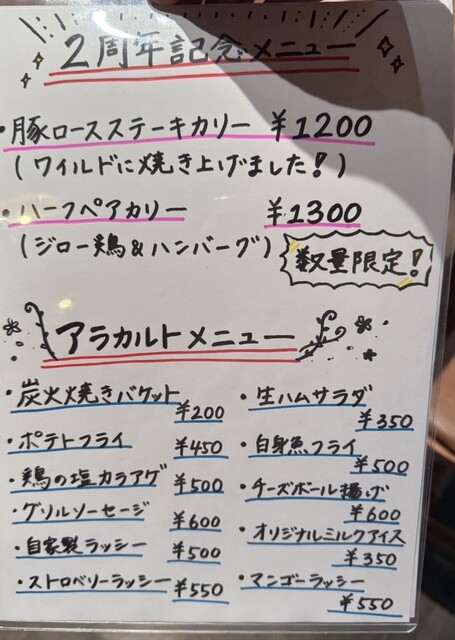 2周年記念メニュー
・豚ロースステーキカリー ¥1200
(ワイルドに焼き上げました!)
・ハーフペアカリー ¥1300
(ジロー鶏&ハンバーグ) 数量限定!
アラカルトメニュー
・炭火焼きバケット ¥200
・ポテトフライ ¥450
・鶏の塩カラアゲ ¥500
・グリルソーセージ ¥600
・自家製ラッシー ¥500
・ストロベリーラッシー ¥550
・生ハムサラダ ¥350
・白身魚フライ ¥500
・チーズボール揚げ ¥600
・オリジナルミルクアイス ¥350
・マンゴーラッシー ¥550